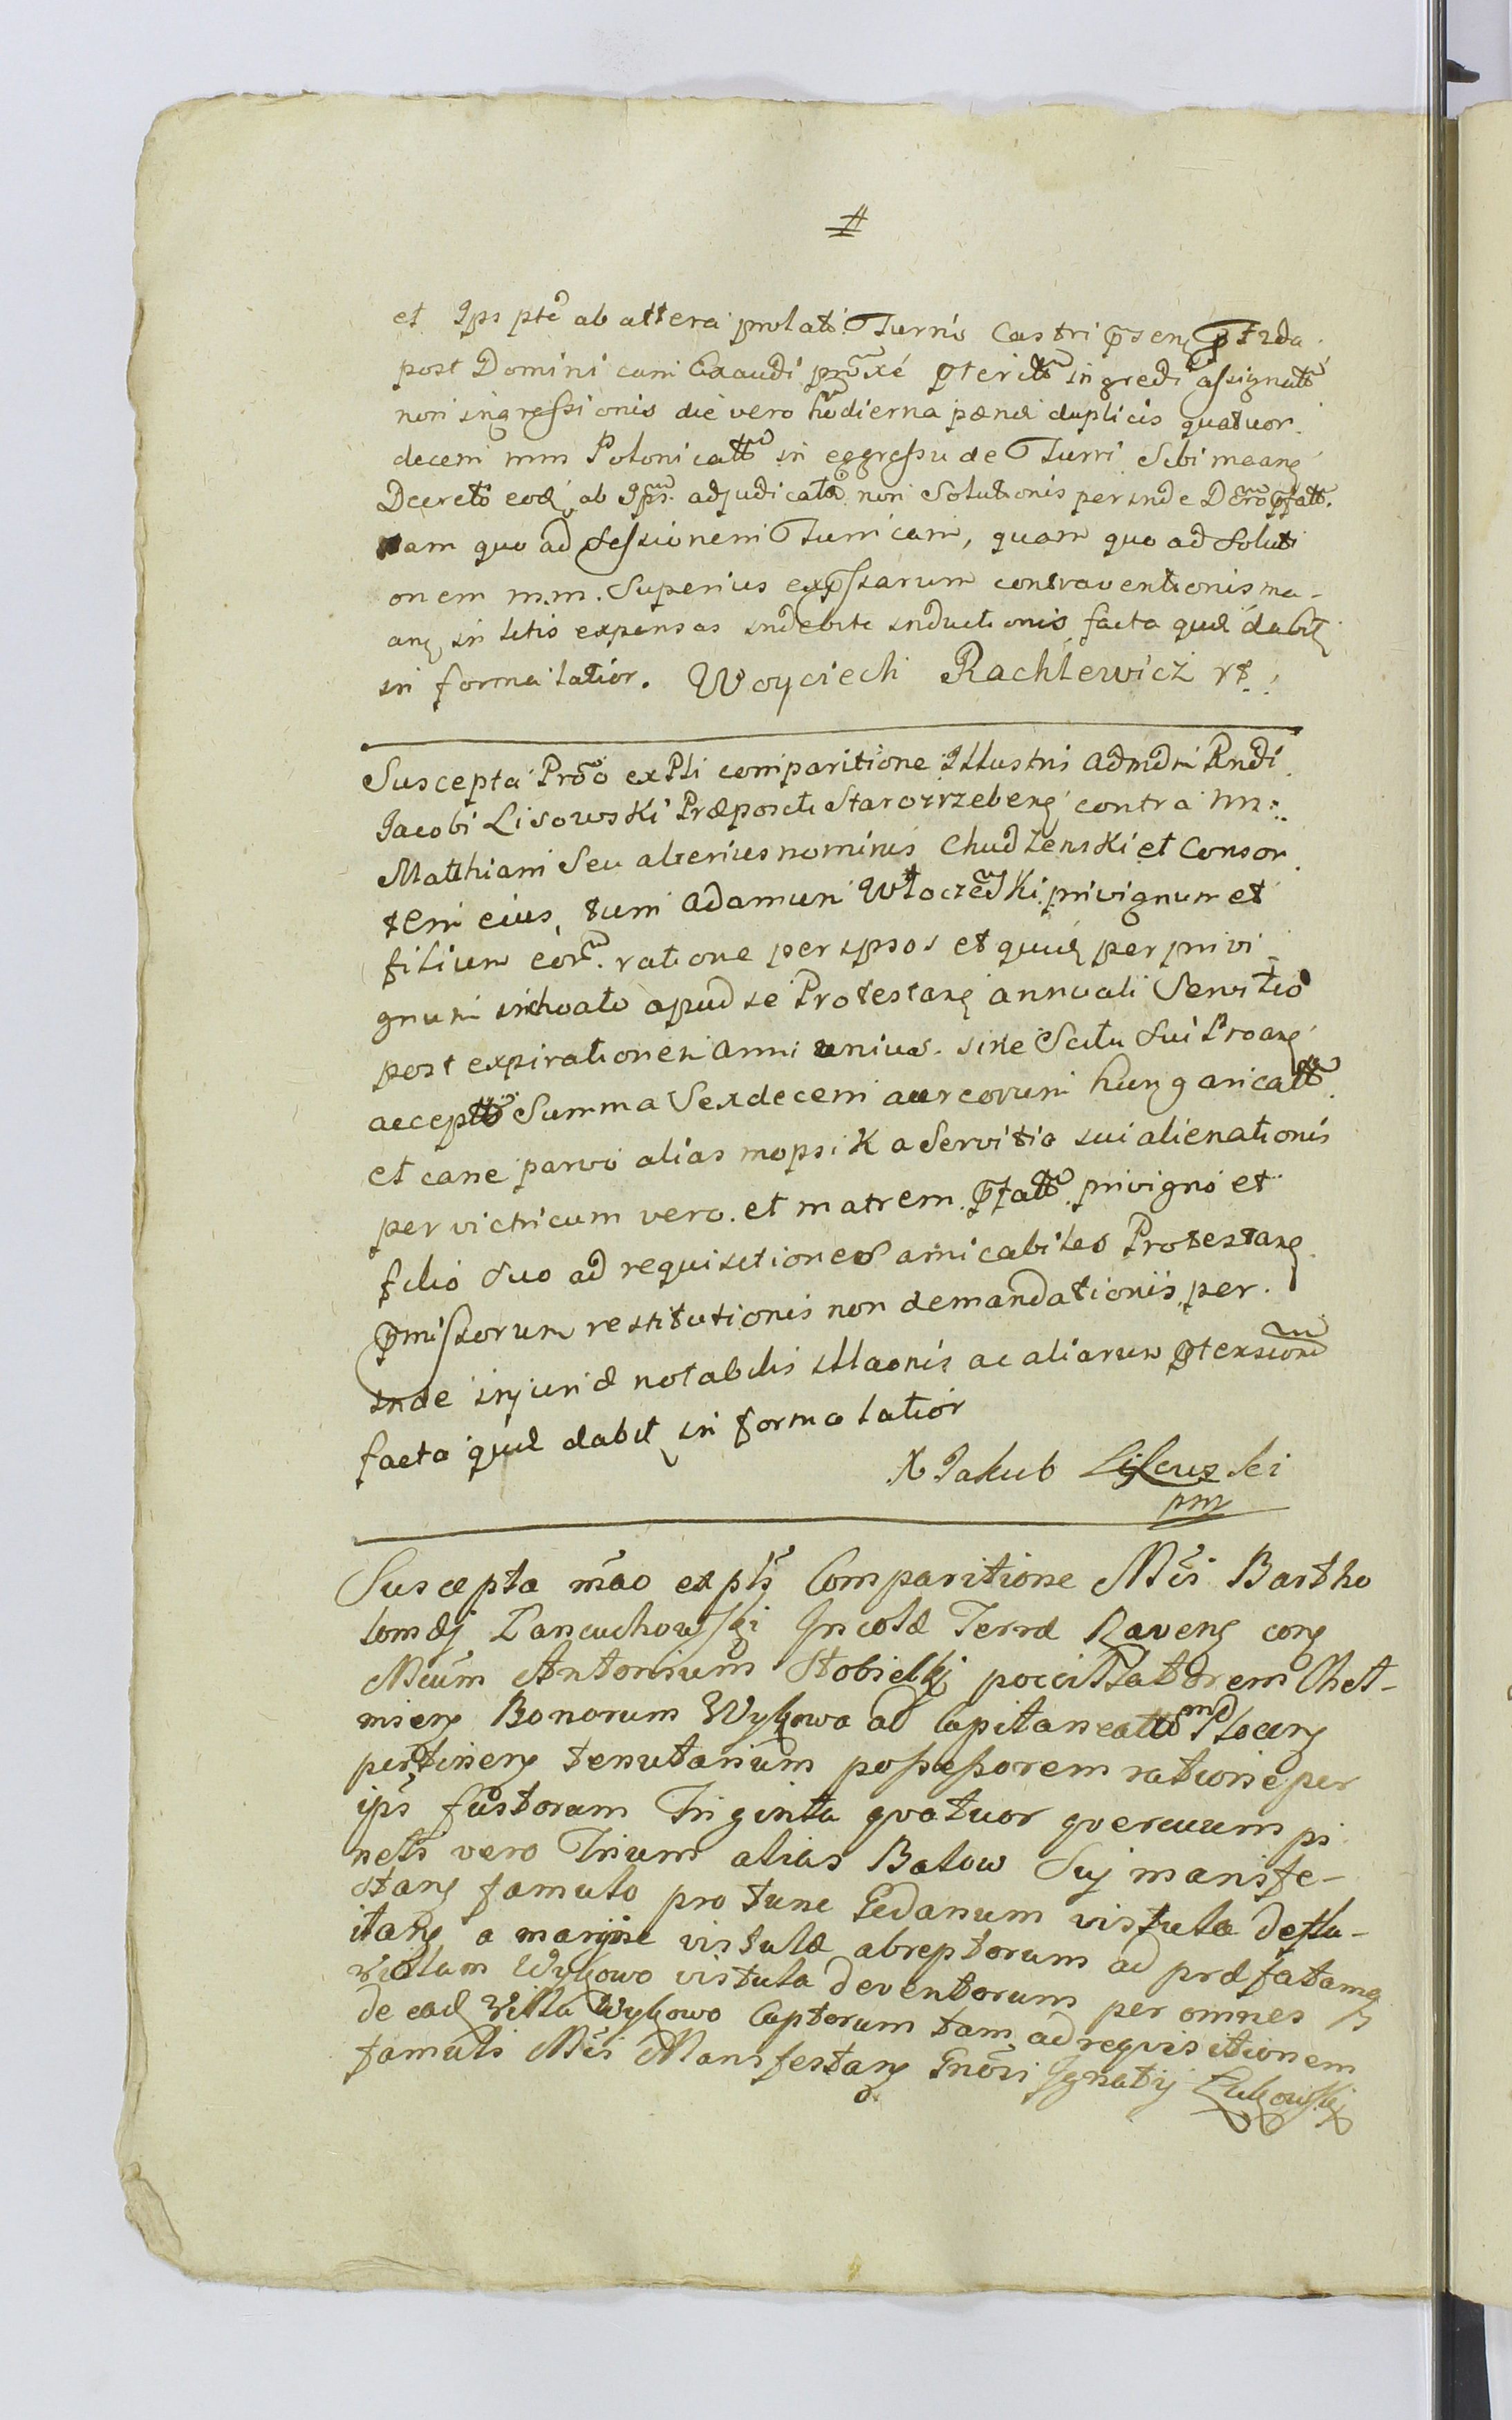 #
et Ips ptẽ ab altera prolati Turris Castri pñsenz Frda
post Dominicam Exaudi proxĩe pteritã ingredi assignatt
non ingressionis die vero hodierna pænæ duplicis quatuor
decem mm Polonicatt in eggressu de Turri Sibi maanz
Decreto eod ab Ips adjudicatt non Solutionis perinde Decro pfatt.
tam quo ad Sessionem Turricam, quam quo ad Soluti
onem m.m. Superius expssarum contraventionis ma-
anz in litis expensas indebite inductionis facta quæ dabit
in forma latior. Woyciech Rachlewicz
Suscepta Prõo ex Pti comparitione Illustris admdm Rndi
Jacobi Lisowski Præpositi Starozrzebenz contra nn:
Matthiam Seu alterius nominis Chudzenski et Consor
tem eius, tum Adamum Włoczewski privignum et
filium eor̃. ratione per ipsos et quidẽ per privi
gnum inchoato apud se Protestanz annuali Servitio
post expirationem anni unius. sine Scitu Sui Proanz
acceptt Summa Sexdecem aureorum hungaricatt
et cane parvo alias mopsik a Servitio sui alienationis
per victricum vero. et matrem. pfatt. privigno et
filio Suo ad requisitiones amicabiles Protestanz
pmissorum restitutionis non demandationis per
inde injuriæ notabilis illaonis ac aliarum ptensionũ
facta quæ dabit in forma latior
X Jakub Lisowski
pm
Suscepta mãao ex ptĩs Comparitione Mĩci Bartho
lomæj Lancuchowski Incolæ Terræ Ravenz conz
Mcum Antonium Stobieckj poccillatorem Chel-
miens Bonorum Wykowo ad Capitaneattum Plocenz
pertinenz tenutarium possessorem ratione per
ips̃ fustorum Triginta qvatuor qvercuum pi
netis vero Trium alias Balow Suj manife-
stanz famulo pro tunc Gedanum vistula deflu-
itanz a margine vistulæ abreptorum ad præfatamq
villam Wykowo vistula deventorum per omnes
de eadẽ Villa Wykowo Captorum tam ad reqvisitionem
famuli Mĩci Manifestanz Gnõsi Ignatij Lukowskj